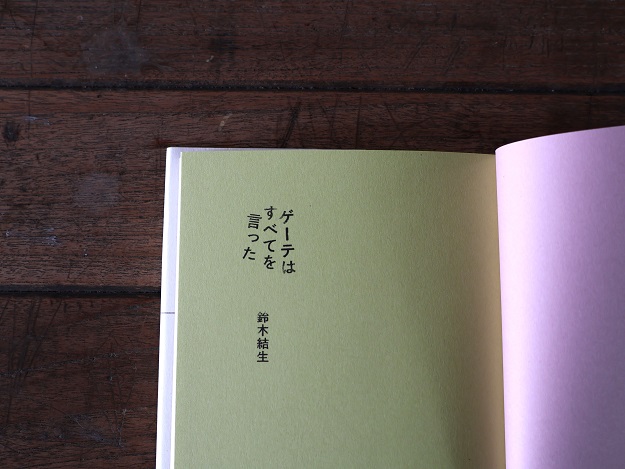 ゲーテは
すべてを
言った
鈴木結生